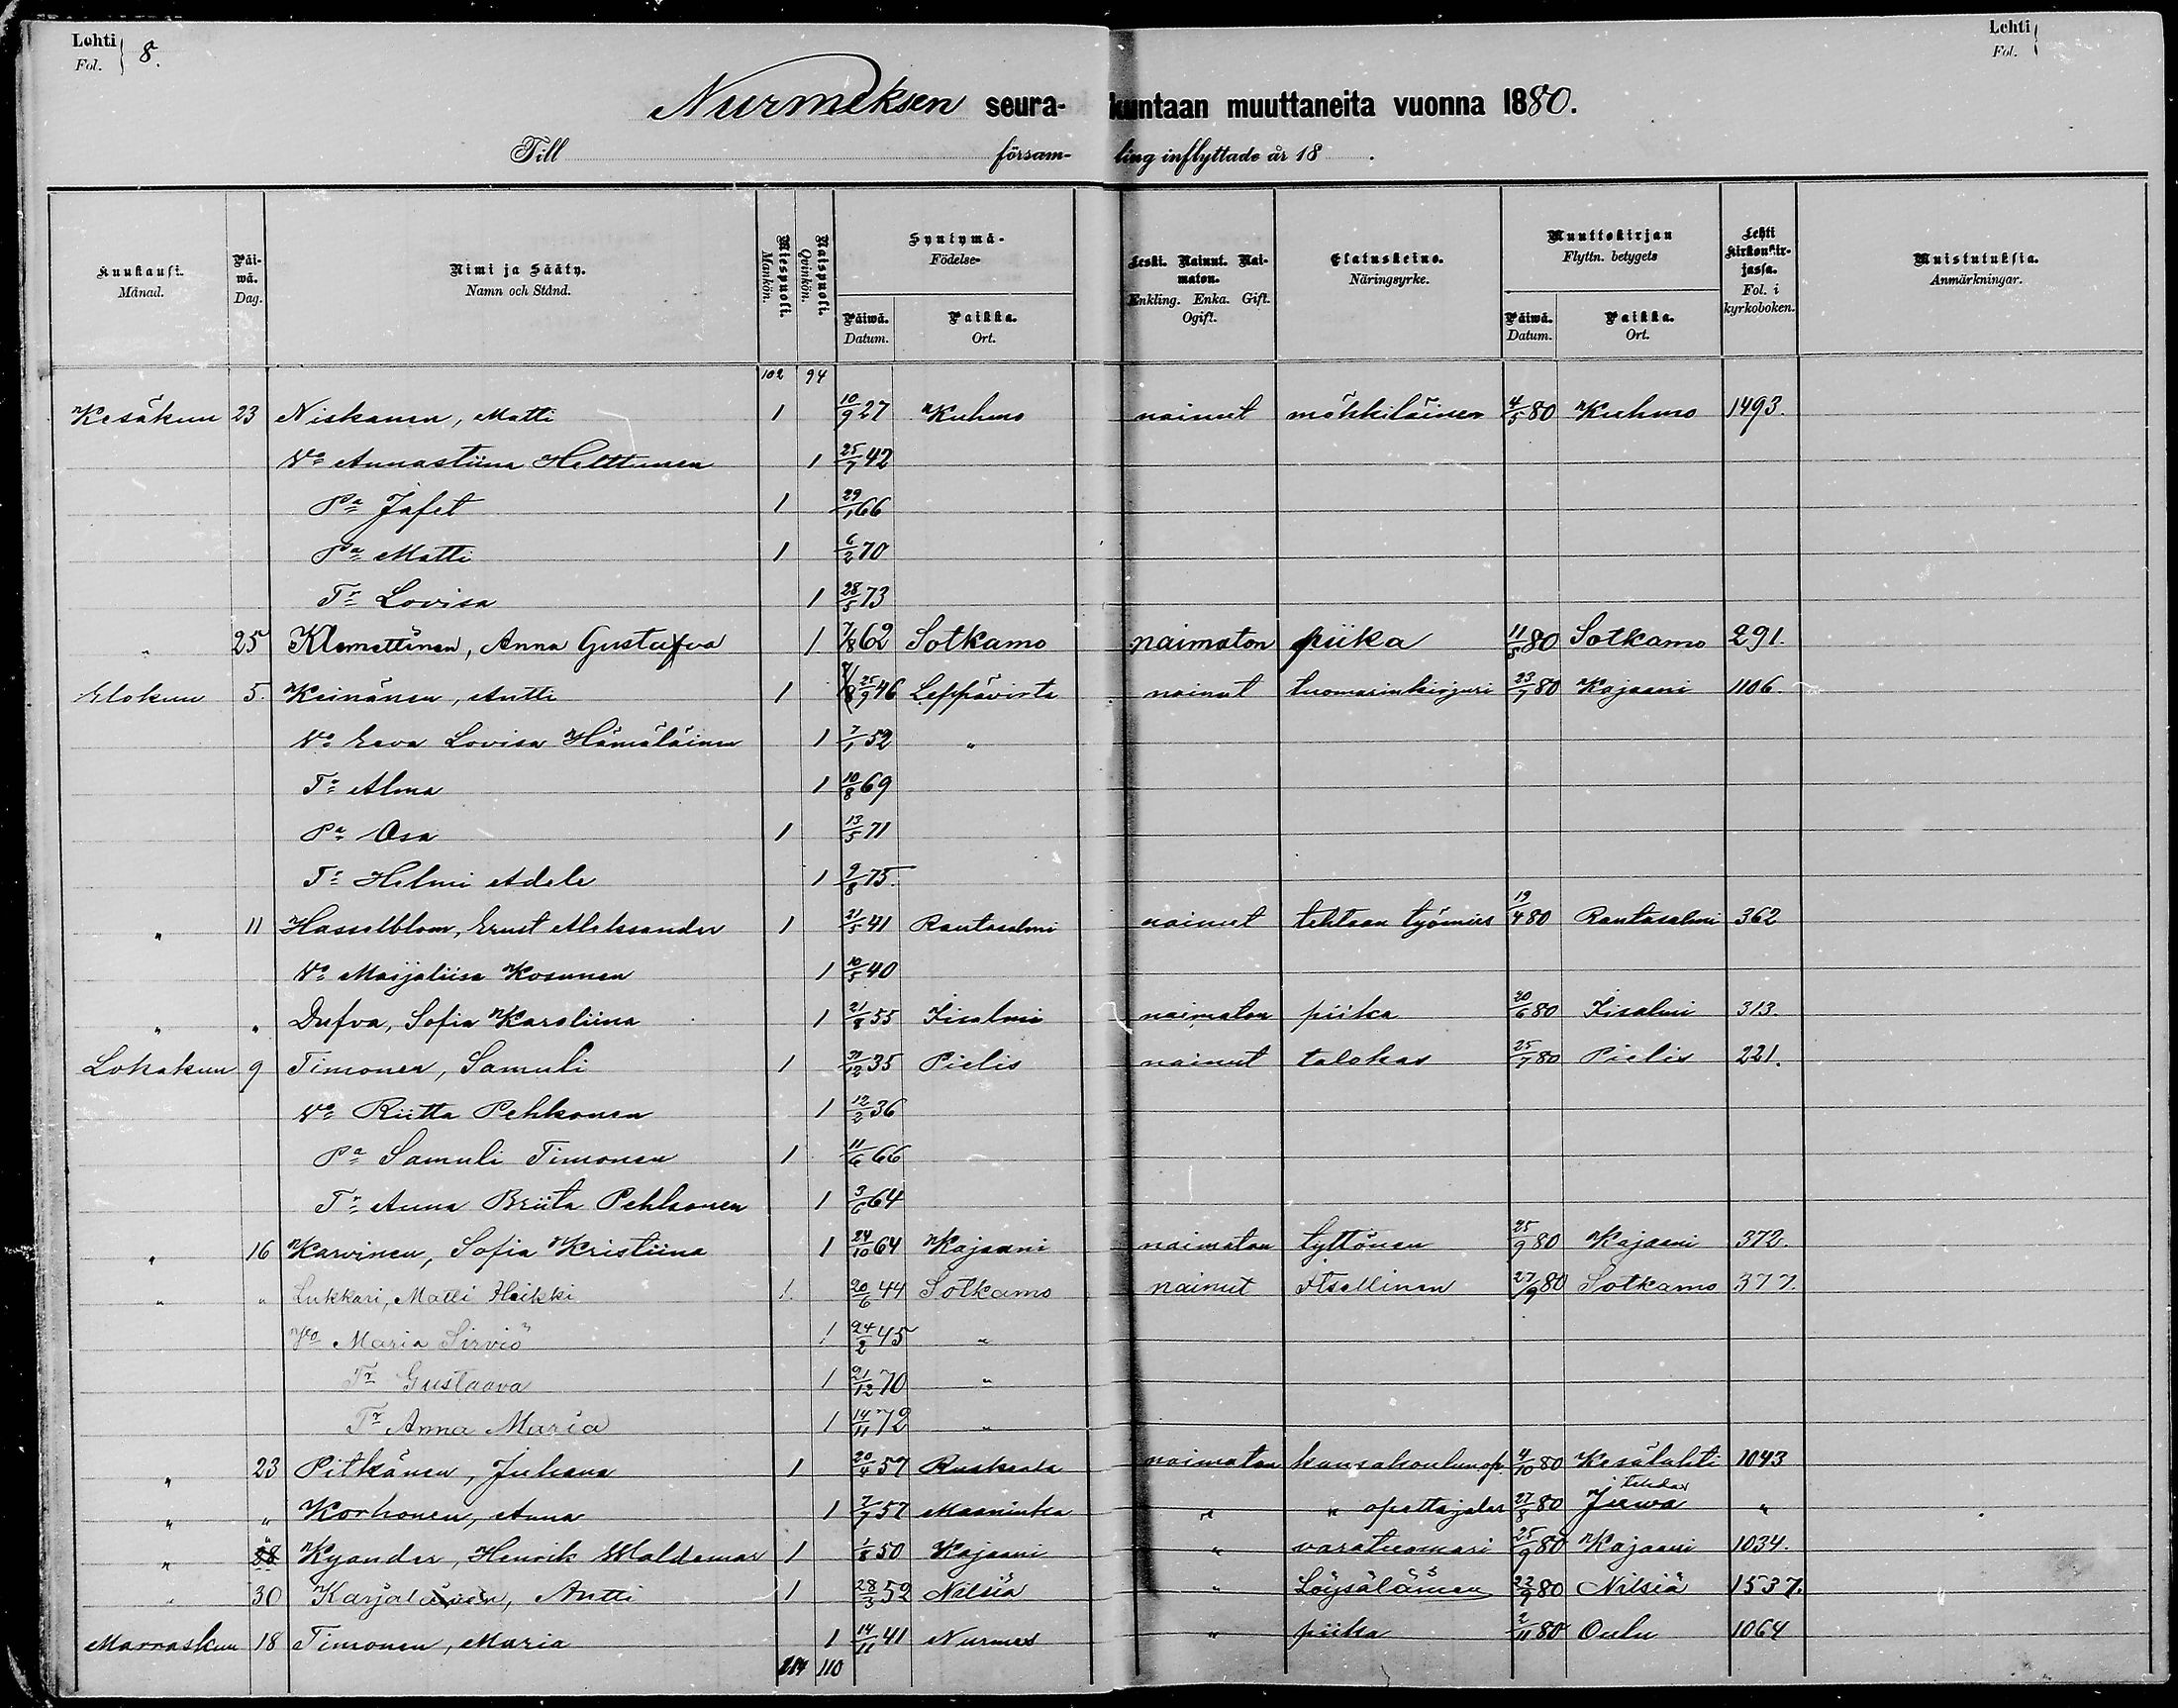 Lehti
Fol. } 8.
Lehti
Fol. {
Nurmeksen seurakuntaan muuttaneita vuonna 1880.
Till församling inflyttade år 18 .
Kuukausi. Månad. Päiwä. Dag. Nimi ja Sääty. Namn och Stånd. Miespuoli. Mankön. Naispuoli. Qvinkön. Syntymä- Födelse- Päiwä. Datum. Paikka. Ort. Leski. Nainut. Naimaton. Enkling. Enka. Gift. Ogift. Elatuskeino. Näringsyrke. Muuttokirjan Flyttn. betygets Päiwä. Datum. Paikka. Ort. Lehti kirkonkirjassa. Fol. i kyrkoboken. Muistutuksia. Anmärkningar.
102 94
Kesäkuu 23 Niskanen, Matti 1 10/9 27 Kuhmo nainut mökkiläinen 4/5 80 Kuhmo 1493.
Vo Annastiina Helttunen 1 25/7 42
Pa Jafet 1 29/1 66
Pa Matti 1 6/2 70
Tr Lovisa 1 28/5 73
" 25 Klemettinen, Anna Gustafva 1 7/8 62 Sotkamo naimaton piika 11/5 80 Sotkamo 291.
Elokuu 5. Keinänen, Antti 1 25/9 46 Leppävirta nainut tuomarinkirjuri 23/7 80 Kajaani 1106.
Vo Eeva Lovisa Hämäläinen 1 7/1 52 "
Tr Alma 1 10/8 69
Pa Osa 1 13/5 71
Tr Helmi Adele 1 9/8 75.
" 11 Hasselblom, Ernst Aleksander 1 21/5 41 Rantasalmi nainut tehtaan työmies 19/4 80 Rantasalmi 362
Vo Maijaliisa Kosunen 1 10/5 40
" " Dufva, Sofia Karoliina 1 21/8 55 Iisalmi naimaton piika 20/6 80 Iisalmi 313.
Lokakuu 9 Timonen, Samuli 1 31/12 35 Pielis nainut talokas 25/7 80 Pielis 221.
Vo Riitta Pehkonen 1 12/2 36
Pa Samuli Timonen 1 11/6 66
Tr Anna Briita Pehkonen 1 3/6 64
" 16 Karvinen, Sofia Kristiina 1 24/10 64 Kajaani naimaton tyttönen 25/9 80 Kajaani 372.
" " Lukkari, Matti Heikki 1. 20/6 44 Sotkamo nainut Itsellinen 27/9 80 Sotkamo 377.
Vo Maria Sirviö 1 24/2 45 "
Tr Gustaava 1 21/12 70 "
Tr Anna Maria 1 14/11 72 "
" 23 Pitkänen, Juhana 1 20/4 57 Ruskeala naimaton kansakoulunop. 4/10 80 Kesälahti 1043
" " Korhonen, Anna 1 7/7 57 Maaninka " " opettajatar 27/8 80 Juwa "
" " Kyander, Henrik Waldemar 1 1/8 50 Kajaani " varatuomari 25/9 80 Kajaani 1034.
" 30 Karjalainen, Antti 1 28/3 52 Nilsiä " Löysäläinen 22/9 80 Nilsiä 1537.
Marraskuu 18 Timonen, Maria 1 14/11 41 Nurmes " piika 2/11 80 Oulu 1064
114 110